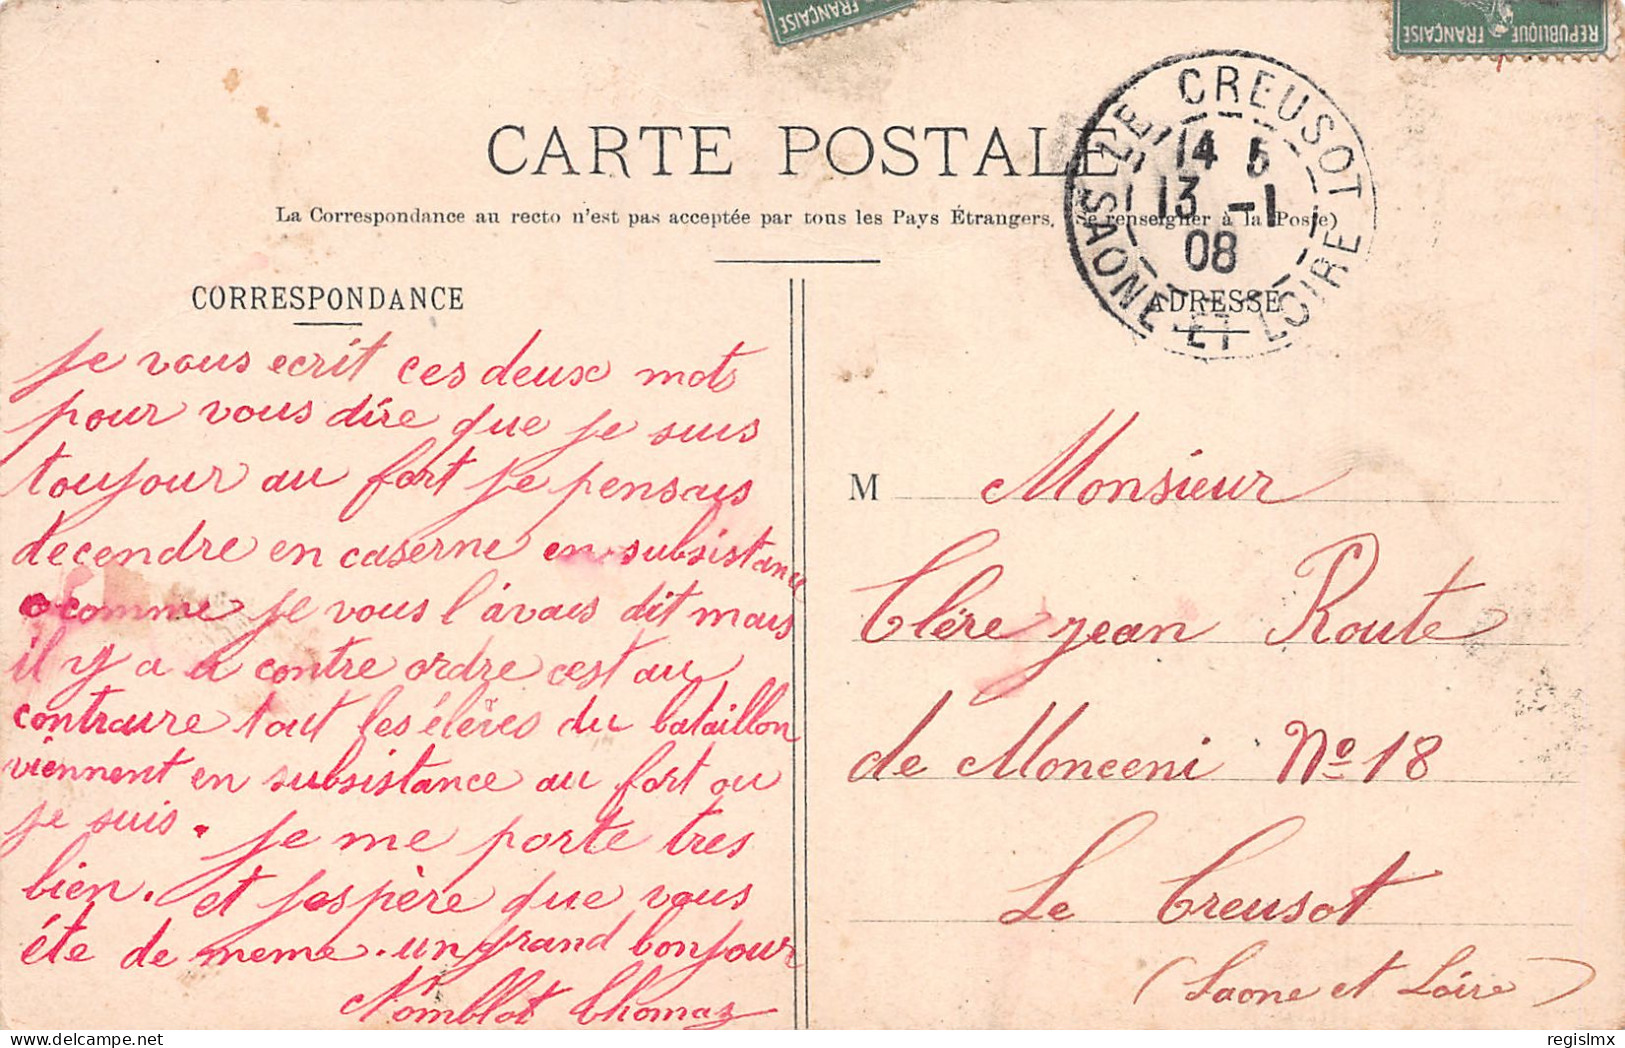 FRANÇAISE
REPUBLIQUE FRANÇAISE
CARTE POSTALE
LE CREUSOT
14 5
13 -1
08
SAONE-ET-LOIRE
La Correspondance au recto n'est pas acceptée par tous les Pays Étrangers. (Se renseigner à la Poste)
CORRESPONDANCE
Je vous ecrit ces deux mots
pour vous dire que je suis
toujour au fort je pensais
decendre en caserne en subsistance
comme je vous l'avais dit mais
il y a a contre ordre cest au
contraire tout les élèves du bataillon
viennent en subsistance au fort ou
je suis. Je me porte tres
bien. et jespère que vous
éte de meme. un grand bonjour
Nomblot Thomas
ADRESSE
M Monsieur
Clère jean Route
de Monceni No 18
Le Creusot
(Saone et Loire)
regislmx